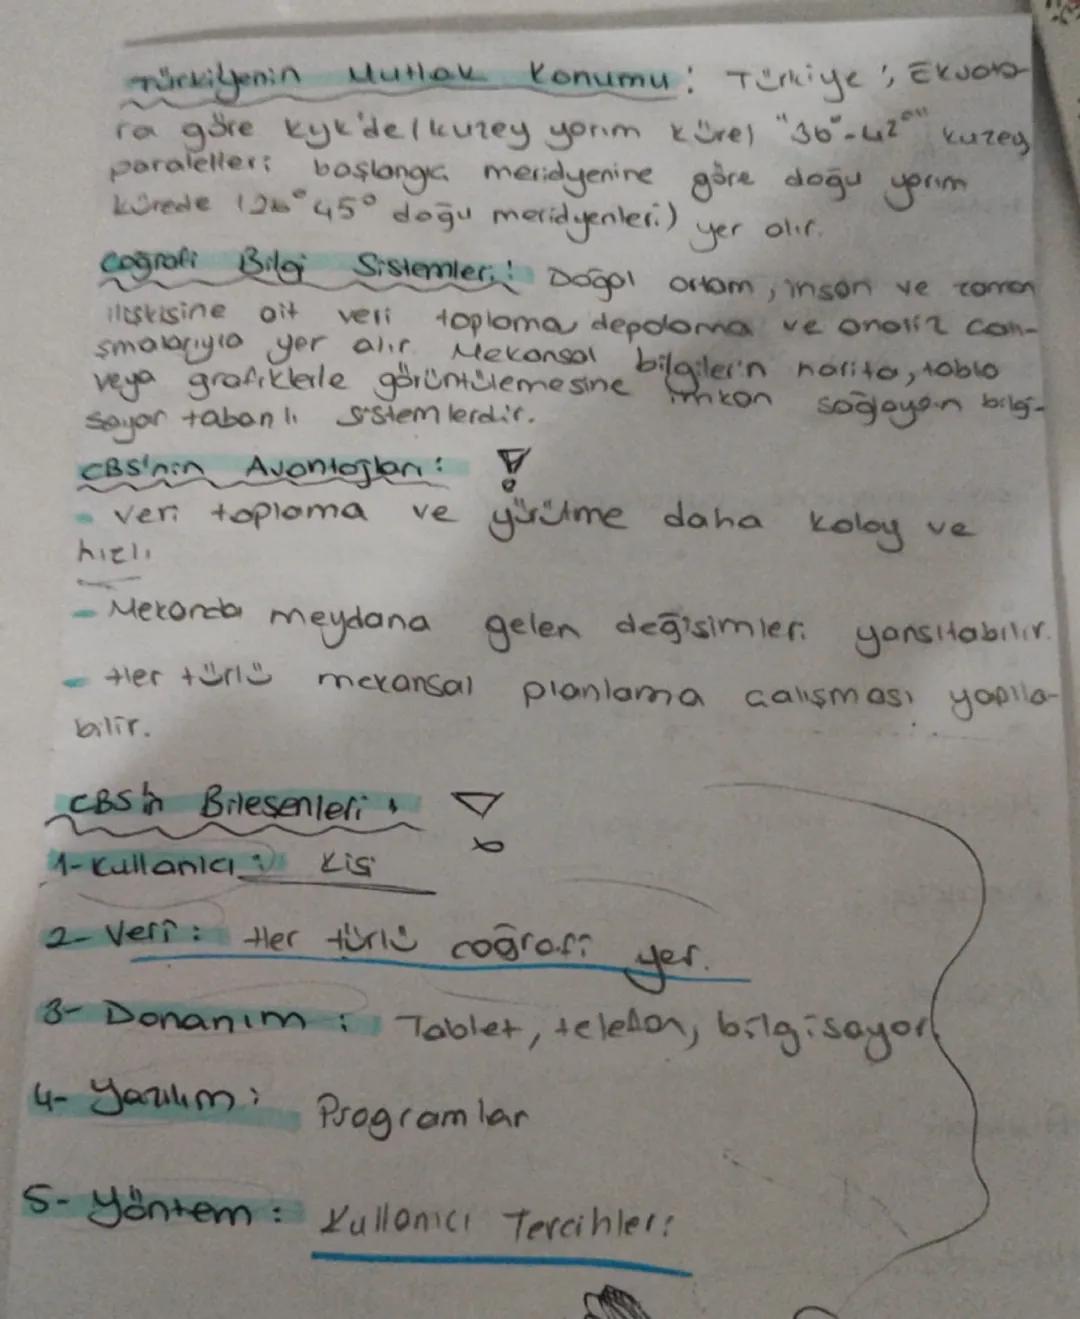 Türkiyenin Mutlak Konumu: Türkiye', Ekvato-
ra göre kyk'de (kuzey yarım küre) "36°-42°" kuzey
paralelleri başlangıç meridyenine göre doğu yarım
kürede (26° 45° doğu meridyenleri) yer alır.
Coğrafi Bilgi Sistemleri: Doğal ortam, insan ve zaman
ilişkisine ait veri toplama, depolama ve analiz çalı-
şmalarıyla yer alır. Mekansal bilgilerin harita, tablo
veya grafiklerle görüntülemesine imkan sağlayan bilgi-
sayar tabanlı sistemlerdir.
CBS'nin Avantajları: !
- Veri toplama ve yürütme daha kolay ve
hızlı
- Mekanda meydana gelen değişimleri yansıtabilir.
- Her türlü mekansal planlama çalışması yapıla-
bilir.
CBS'in Bileşenleri: !
1- Kullanıcı: Kişi
2- Veri: Her türlü coğrafi yer.
3- Donanım: Tablet, telefon, bilgisayar
4- Yazılım: Programlar
5- Yöntem: Kullanıcı Tercihleri